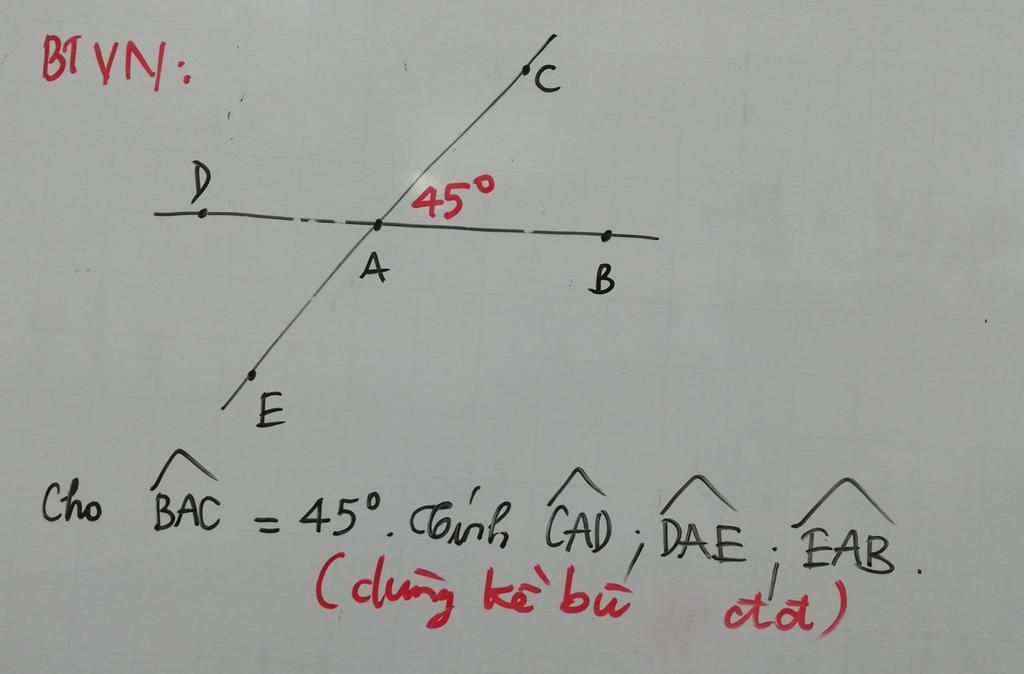 BTVN:
C
D
45°
A
B
E
Cho BAC = 45°. Tính CAD; DAE; EAB.
(dùng kề bù đđ)